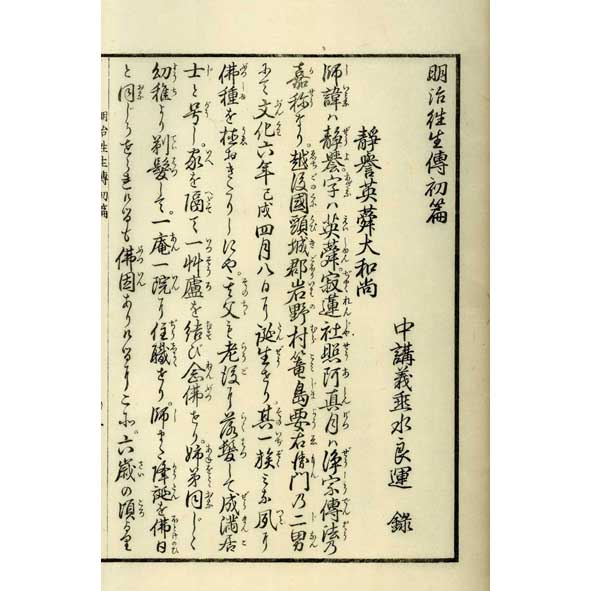 明治徃生傳初篇
中講義垂水良運 錄
靜譽英蕣大和尚
師諱ハ靜譽字ハ英蕣寂蓮社照阿真月ハ浄宗傳法乃
嘉称なり越後國頸城郡岩野村篭島要右衛門乃二男
にて文化六年己戌四月八日に誕生せり其一族ミな夙に
佛種を植おきこりしにや其父も老後に落髮して成満居
士と号し家を隔て一艸廬を結び念佛せり姉弟同じく
幼稚より剃髮して一庵一院に住職せり師また降誕を佛日
と同じうせられけるも佛因ありけるにこそ六歳の頃より
明治徃生傳初篇